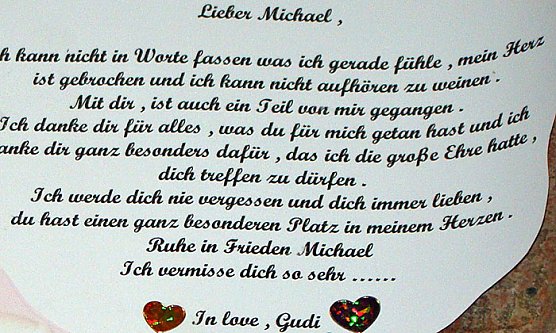 Lieber Michael ,
h kann nicht in Worte fassen was ich gerade fühle , mein Herz
ist gebrochen und ich kann nicht aufhören zu weinen .
Mit dir , ist auch ein Teil von mir gegangen .
Ich danke dir für alles , was du für mich getan hast und ich
anke dir ganz besonders dafür , das ich die große Ehre hatte ,
dich treffen zu dürfen .
Ich werde dich nie vergessen und dich immer lieben ,
du hast einen ganz besonderen Platz in meinem Herzen .
Ruhe in Frieden Michael
Ich vermisse dich so sehr ......
In love , Gudi